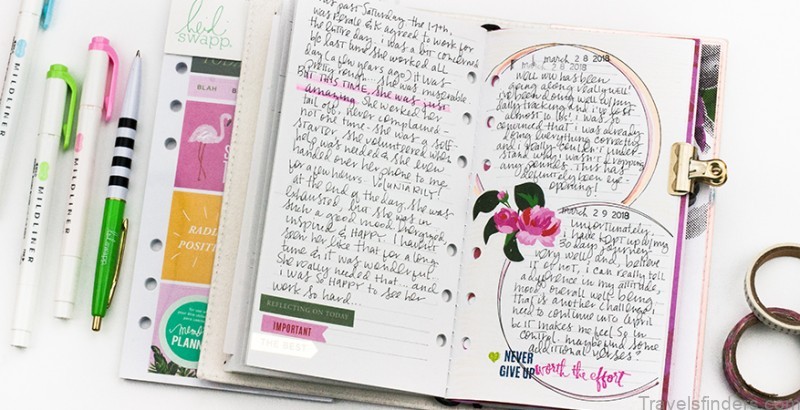 heidi
swapp.
MIDLINER
MIDLINER
MIDLINER
TODAY
BLAH
RADI
POSITI
memory
PLANN
this past Saturday the 17th,
was Resale & K agreed to work for
the entire day. I was a bit concerned
b/c last time she worked all
day (a few years ago) it was
pretty rough... she was miserable.
But THIS TIME, she was just
amazing. She worked her
tail off, never complained -
not one time - she was a self-
starter, she volunteered when
help was needed & she even
handed over her phone to me
for a few hours. VOLUNTARILY!
At the end of the day, she was
exhausted, but she was in
such a good mood, energized,
inspired & HAPPY. I haven't
seen her like that for a long
time & it was wonderful.
She really needed that... and
I was so HAPPY to see her
work so hard...
REFLECTING ON TODAY
IMPORTANT
THE BEST
march 28 2018
MARCH 28 2018
well WW has been
going along really well!
I've been doing well w/ my
daily tracking and I've lost
almost 10 lbs! I was
convinced that I was already
doing everything correctly
and I really couldn't under-
stand why I wasn't dropping
any pounds. This has
definitely been eye-
opening!
MARCH 29 2018
Unfortunately, I
have kept up w/ my
30 days journey
very well and, believe
it or not, I can really tell
a difference in my attitude,
mood, overall well-being...
that is another challenge I
need to continue into April
b/c it makes me feel so in
control. maybe find some
additional verses?
NEVER
GIVE UP
worth the effort
Travelsfinders.com